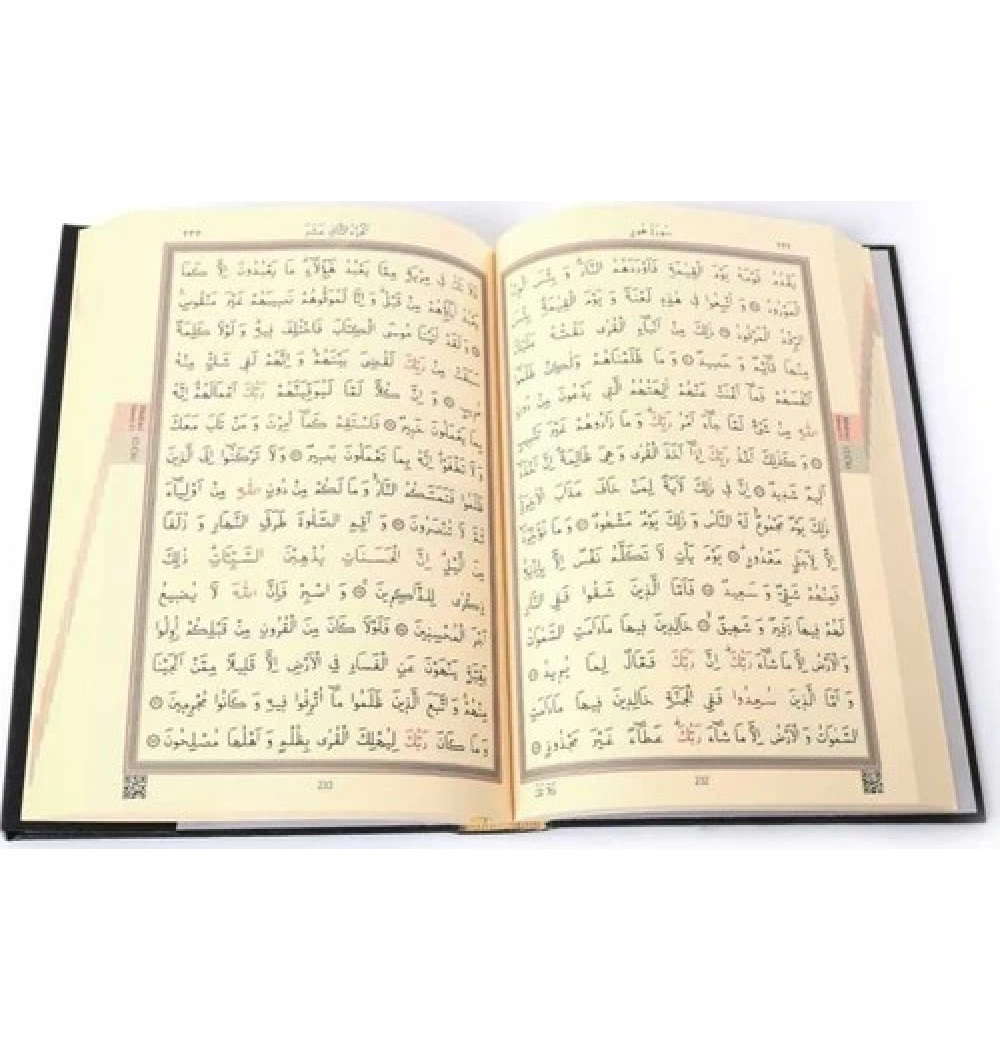 سورة هود
٢٣٢
يَقْدُمُ قَوْمَهُ يَوْمَ الْقِيٰمَةِ فَاَوْرَدَهُمُ النَّارَۜ وَ بِئْسَ الْوِرْدُ
الْمَوْرُودُ وَ اُتْبِعُوا فِي هٰذِهِ لَعْنَةً وَ يَوْمَ الْقِيٰمَةِۜ بِئْسَ
الرِّفْدُ الْمَرْفُودُ ذٰلِكَ مِنْ اَنْبَاۤءِ الْقُرٰى نَقُصُّهُ عَلَيْكَ
مِنْهَا قَاۤئِمٌ وَ حَصِيدٌ وَ مَا ظَلَمْنَاهُمْ وَلٰكِنْ ظَلَمُوۤا
اَنْفُسَهُمْ فَمَاۤ اَغْنَتْ عَنْهُمْ اٰلِهَتُهُمُ الَّتِي يَدْعُونَ مِنْ دُونِ
اللّٰهِ مِنْ شَيْءٍ لَمَّا جَاۤءَ اَمْرُ رَبِّكَۜ وَ مَا زَادُوهُمْ غَيْرَ تَتْبِيبٍ
وَ كَذٰلِكَ اَخْذُ رَبِّكَ اِذَاۤ اَخَذَ الْقُرٰى وَ هِيَ ظَالِمَةٌۜ اِنَّ اَخْذَهُۤ
اَلِيمٌ شَدِيدٌ اِنَّ فِي ذٰلِكَ لَاٰيَةً لِمَنْ خَافَ عَذَابَ الْاٰخِرَةِۜ
ذٰلِكَ يَوْمٌ مَجْمُوعٌۙ لَهُ النَّاسُ وَ ذٰلِكَ يَوْمٌ مَشْهُودٌ وَ مَا نُؤَخِّرُهُۤ
اِلَّا لِاَجَلٍ مَعْدُودٍۜ يَوْمَ يَأْتِ لَا تَكَلَّمُ نَفْسٌ اِلَّا بِاِذْنِهِۚ
فَمِنْهُمْ شَقِيٌّ وَ سَعِيدٌ فَاَمَّا الَّذِينَ شَقُوا فَفِي النَّارِ
لَهُمْ فِيهَا زَفِيرٌ وَ شَهِيقٌۙ خَالِدِينَ فِيهَا مَادَامَتِ السَّمٰوَاتُ
وَ الْاَرْضُ اِلَّا مَا شَاۤءَ رَبُّكَۜ اِنَّ رَبَّكَ فَعَّالٌ لِمَا يُرِيدُ
وَ اَمَّا الَّذِينَ سُعِدُوا فَفِي الْجَنَّةِ خَالِدِينَ فِيهَا مَادَامَتِ
السَّمٰوَاتُ وَ الْاَرْضُ اِلَّا مَا شَاۤءَ رَبُّكَۜ عَطَاۤءً غَيْرَ مَجْذُوذٍ
232
فَلَا تَكُ
اَلْجُزْءُ الثَّانِي عَشَرَ
٢٣٣
فَلَا تَكُ فِي مِرْيَةٍ مِمَّا يَعْبُدُ هٰۤؤُلَاۤءِۜ مَا يَعْبُدُونَ اِلَّا كَمَا
يَعْبُدُ اٰبَاۤؤُهُمْ مِنْ قَبْلُۜ وَ اِنَّا لَمُوَفُّوهُمْ نَصِيبَهُمْ غَيْرَ مَنْقُوصٍ
وَ لَقَدْ اٰتَيْنَا مُوسَى الْكِتَابَ فَاخْتُلِفَ فِيهِۜ وَ لَوْلَا كَلِمَةٌ
سَبَقَتْ مِنْ رَبِّكَ لَقُضِيَ بَيْنَهُمْۜ وَ اِنَّهُمْ لَفِي شَكٍّ مِنْهُ
مُرِيبٍ وَ اِنَّ كُلًّا لَمَّا لَيُوَفِّيَنَّهُمْ رَبُّكَ اَعْمَالَهُمْۜ اِنَّهُ
بِمَا يَعْمَلُونَ خَبِيرٌ فَاسْتَقِمْ كَمَاۤ اُمِرْتَ وَ مَنْ تَابَ مَعَكَ
وَ لَا تَطْغَوْاۜ اِنَّهُ بِمَا تَعْمَلُونَ بَصِيرٌ وَ لَا تَرْكَنُوۤا اِلَى الَّذِينَ
ظَلَمُوا فَتَمَسَّكُمُ النَّارُۙ وَ مَا لَكُمْ مِنْ دُونِ اللّٰهِ مِنْ اَوْلِيَاۤءَ
ثُمَّ لَا تُنْصَرُونَ وَ اَقِمِ الصَّلٰوةَ طَرَفَيِ النَّهَارِ وَ زُلَفًا
مِنَ الَّيْلِۜ اِنَّ الْحَسَنَاتِ يُذْهِبْنَ السَّيِّئَاتِۜ ذٰلِكَ
ذِكْرٰى لِلذَّاكِرِينَ وَ اصْبِرْ فَاِنَّ اللّٰهَ لَا يُضِيعُ
اَجْرَ الْمُحْسِنِينَ فَلَوْلَا كَانَ مِنَ الْقُرُونِ مِنْ قَبْلِكُمْ اُولُوا
بَقِيَّةٍ يَنْهَوْنَ عَنِ الْفَسَادِ فِي الْاَرْضِ اِلَّا قَلِيلًا مِمَّنْ اَنْجَيْنَا
مِنْهُمْۚ وَ اتَّبَعَ الَّذِينَ ظَلَمُوا مَاۤ اُتْرِفُوا فِيهِ وَ كَانُوا مُجْرِمِينَ
وَ مَا كَانَ رَبُّكَ لِيُهْلِكَ الْقُرٰى بِظُلْمٍ وَ اَهْلُهَا مُصْلِحُونَ
233